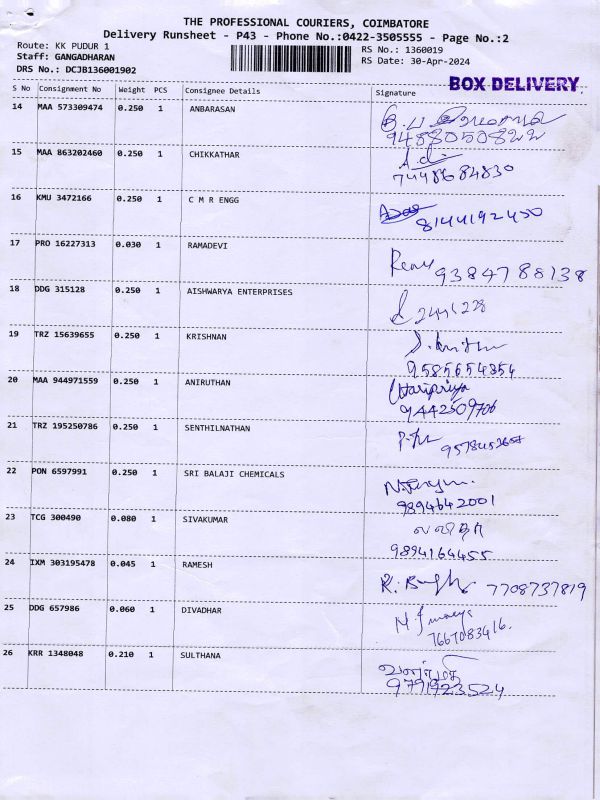 THE PROFESSIONAL COURIERS, COIMBATORE
Delivery Runsheet - P43 - Phone No.:0422-3505555 - Page No.:2
Route: KK PUDUR 1 RS No.: 1360019
Staff: GANGADHARAN RS Date: 30-Apr-2024
DRS No.: DCJB136001902
BOX DELIVERY
S No Consignment No Weight PCS Consignee Details Signature
14 MAA 573309474 0.250 1 ANBARASAN
9488050822
15 MAA 863202460 0.250 1 CHIKKATHAR
7448684830
16 KMU 3472166 0.250 1 C M R ENGG
8144192450
17 PRO 16227313 0.030 1 RAMADEVI
9384788138
18 DDG 315128 0.250 1 AISHWARYA ENTERPRISES
19 TRZ 15639655 0.250 1 KRISHNAN
9585654854
20 MAA 944971559 0.250 1 ANIRUTHAN
Haripriya
9442509706
21 TRZ 195250786 0.250 1 SENTHILNATHAN
22 PON 6597991 0.250 1 SRI BALAJI CHEMICALS
9894642001
23 TCG 300490 0.080 1 SIVAKUMAR
லலிதா
9894164455
24 IXM 303195478 0.045 1 RAMESH
7708737819
25 DDG 657986 0.060 1 DIVADHAR
7667083416.
26 KRR 1348048 0.210 1 SULTHANA
வளர்மதி
9791923524